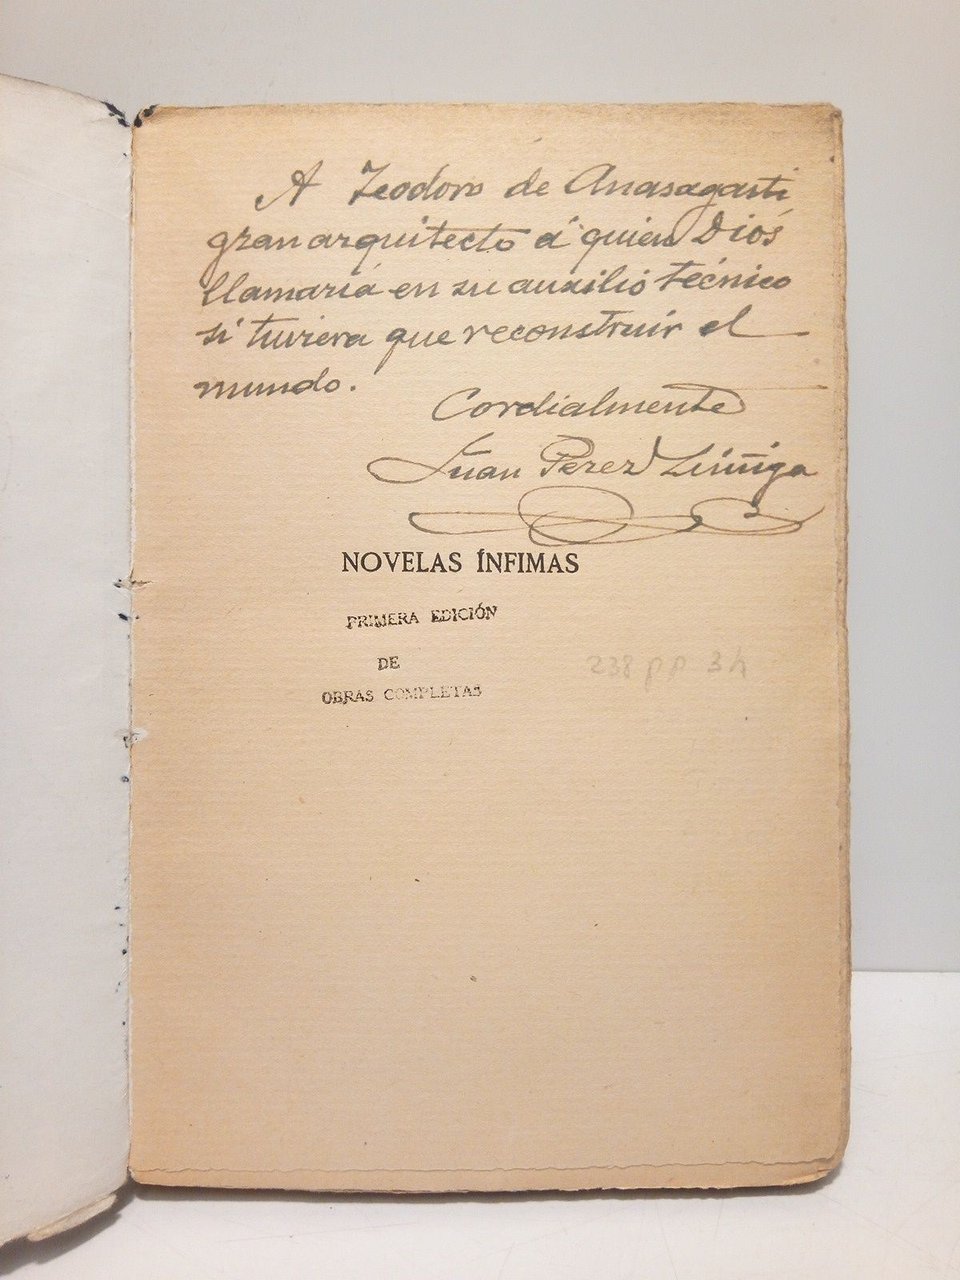 A Teodoro de Anasagasti
gran arquitecto á quien Dios
llamaría en su auxilio técnico
si tuviera que reconstruir el
mundo.
Cordialmente
Juan Pérez Zúñiga
NOVELAS ÍNFIMAS
PRIMERA EDICIÓN
DE
OBRAS COMPLETAS
238 pp 3h